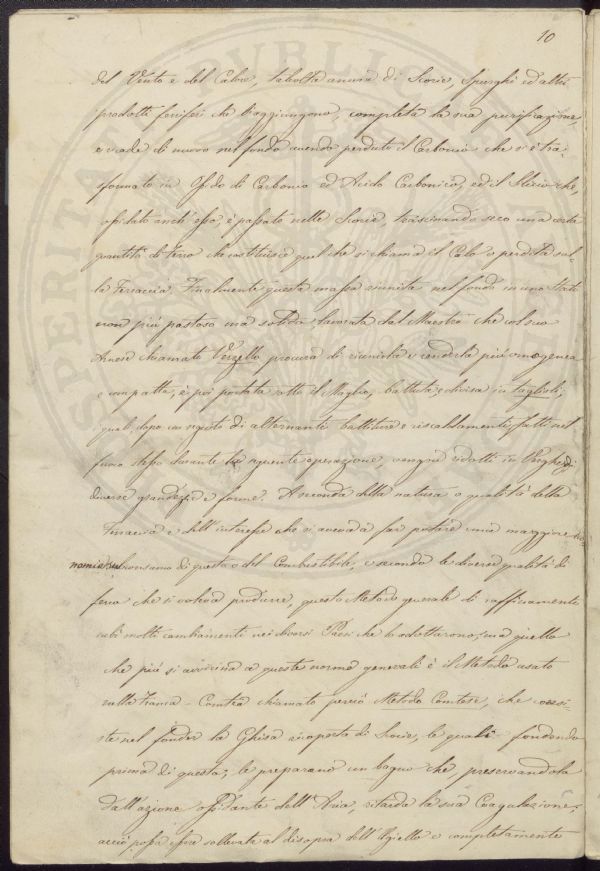 10
del Vento e del Calore, talvolta ancora di Scorie, Spurghi ed altri
prodotti feriferi che vi aggiungono, completa la sua purificazione,
e ricade di nuovo nel fondo avendo perduto il Carbonio che si è tra-
sformato in Ossido di Carbonio ed Acido Carbonico, ed il Silicio che,
ossidato anch'esso, è passato nelle Scorie, trascinando seco una certa
quantità di ferro che costituisce quel che si chiama il Calo o perdita sul-
la Ferraccia. Finalmente questa massa riunita nel fondo in uno stato
non più pastoso ma solido, lavorata dal Maestro che col suo
Arnese chiamato Verzello procura di riunirla e renderla più omogenea
e compatta, è poi portata sotto il Maglio, battuta e divisa in taglioli,
i quali dopo un seguito di alternanti battiture e riscaldamenti, fatti nel
fuoco stesso durante la seguente operazione, vengon ridotti in Verghe di
diverse grandezze e forme. A seconda della natura o qualità della
Ferraccia e dell'interesse che si aveva a far portare una maggiore eco-
nomia sul consumo di questa o del Combustibile, e secondo le diverse qualità di
ferro che si voleva produrre, questo Metodo generale di raffinamento
subì molti cambiamenti nei diversi Paesi che lo adottarono; ma quello
che più si avvicina a queste norme generali è il Metodo usato
nella Franca-Contea chiamato perciò Metodo Contese, che consi-
ste nel fonder la Ghisa ricoperta di Scorie, le quali fondendo
prima di questa, le preparano un bagno che, preservandola
dall'azione ossidante dell'Aria, ritarda la sua Coagulazione,
acciò possa esser sollevata al disopra dell'Ugello e completamente